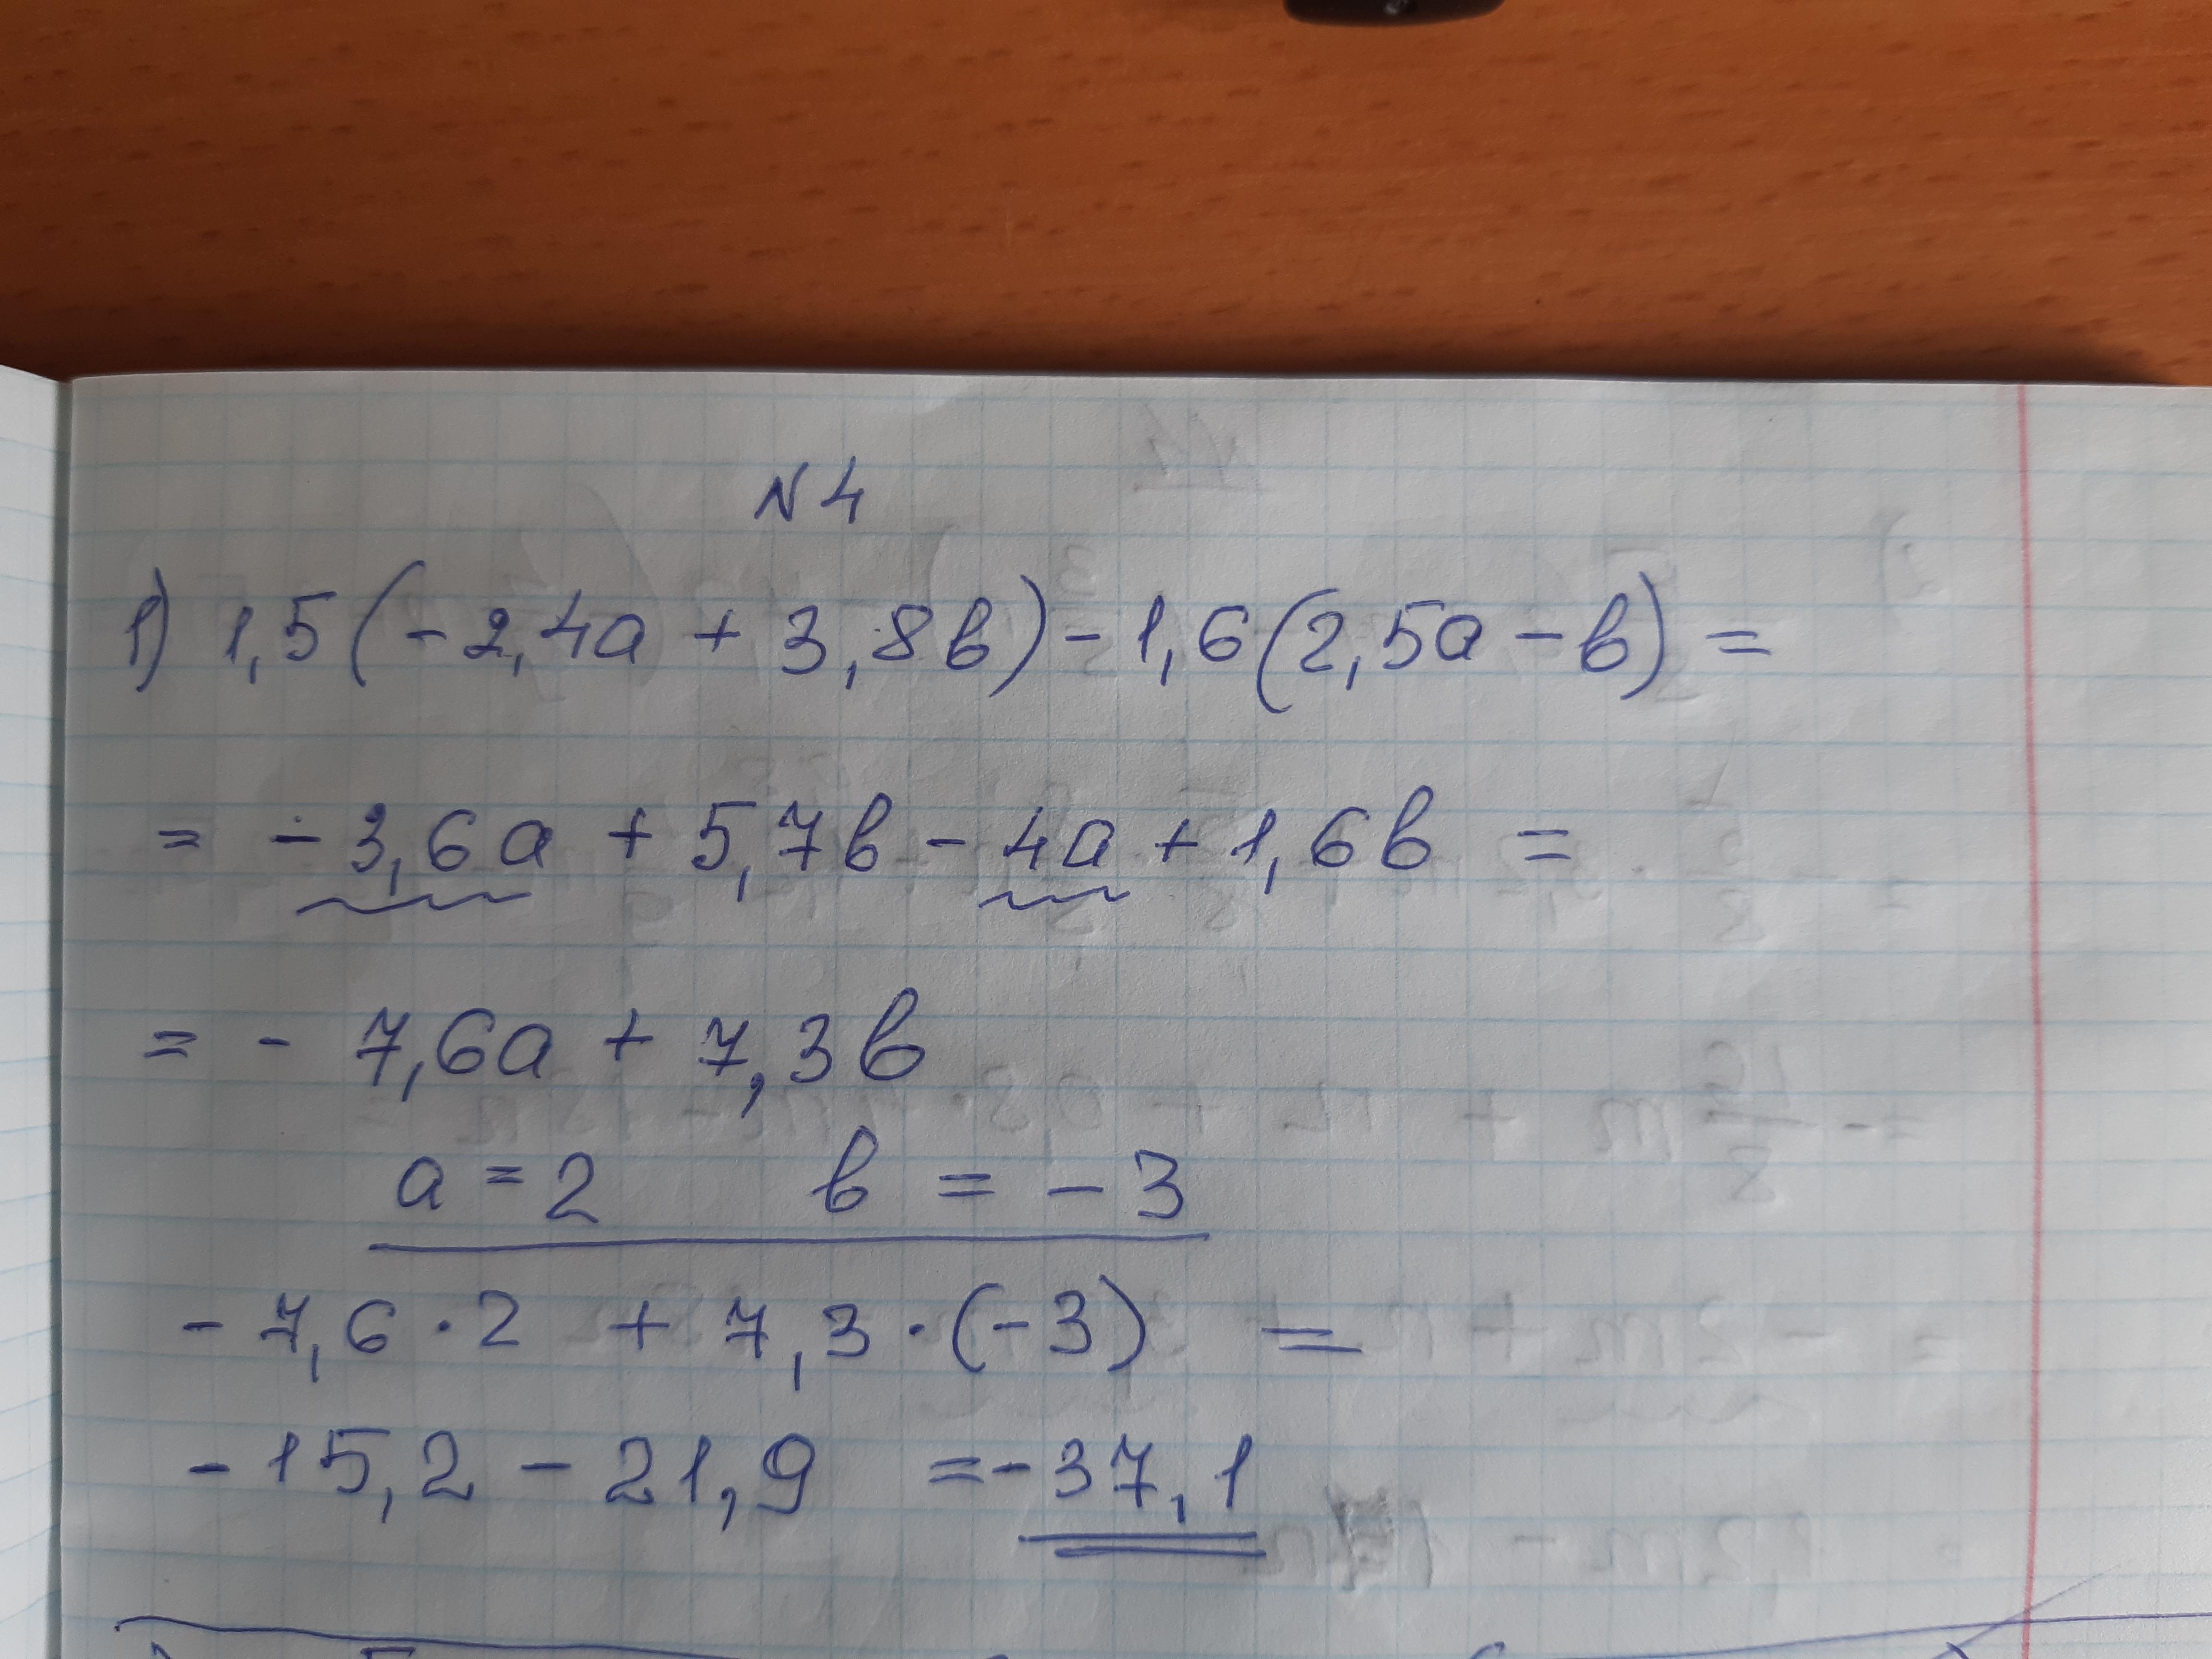 N 4
1) 1,5(-2,4a + 3,8в) - 1,6(2,5a - в) =
= - 3,6a + 5,7в - 4a + 1,6в =
= - 7,6a + 7,3в
a = 2 в = - 3
- 7,6 · 2 + 7,3 · (-3) =
- 15,2 - 21,9 = - 37,1